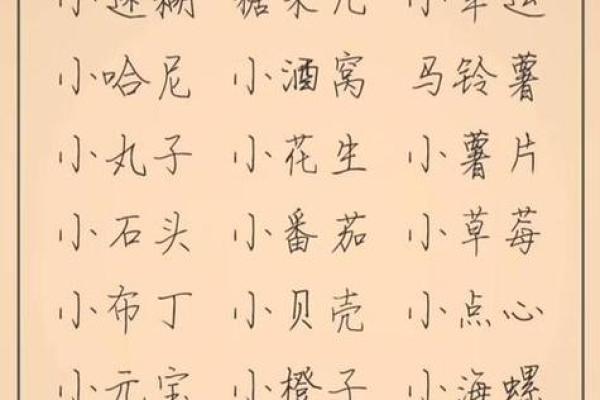 小迷糊 糖果儿 小幸运
小哈尼 小酒窝 马铃薯
小丸子 小花生 小薯片
小石头 小番茄 小草莓
小布丁 小贝壳 小点心
小元宝 小橙子 小海螺